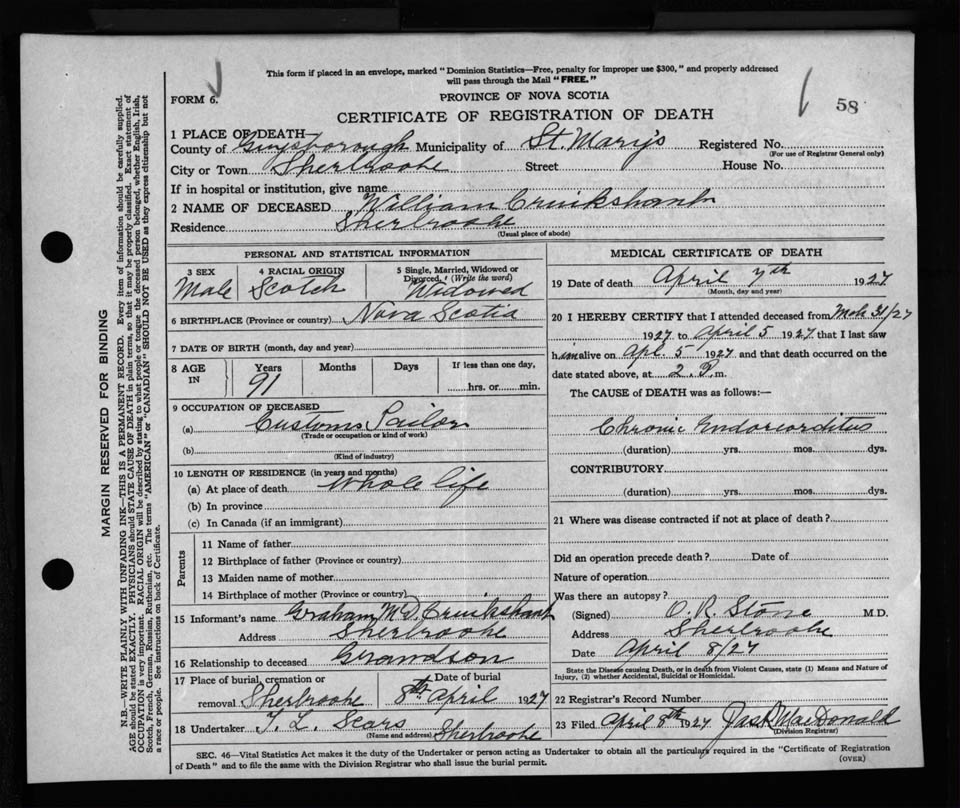 This form if placed in an envelope, marked "Dominion Statistics—Free, penalty for improper use $300," and properly addressed
will pass through the Mail "FREE."
FORM 6.
PROVINCE OF NOVA SCOTIA
58
CERTIFICATE OF REGISTRATION OF DEATH
1 PLACE OF DEATH
County of Guysborough Municipality of St. Mary's Registered No.
(For use of Registrar General only)
City or Town Sherbrooke Street House No.
If in hospital or institution, give name
2 NAME OF DECEASED William Cruikshank
Residence Sherbrooke
(Usual place of abode)
PERSONAL AND STATISTICAL INFORMATION
3 SEX 4 RACIAL ORIGIN 5 Single, Married, Widowed or
Divorced, (Write the word)
Male Scotch Widowed
6 BIRTHPLACE (Province or country) Nova Scotia
7 DATE OF BIRTH (month, day and year)
8 AGE IN Years Months Days If less than one day,
91 hrs. or min.
9 OCCUPATION OF DECEASED
(a) Customs Sailor
(Trade or occupation or kind of work)
(b)
(Kind of industry)
10 LENGTH OF RESIDENCE (in years and months)
(a) At place of death Whole life
(b) In province
(c) In Canada (if an immigrant)
Parents
11 Name of father
12 Birthplace of father (Province or country)
13 Maiden name of mother
14 Birthplace of mother (Province or country)
15 Informant's name Graham McD. Cruikshank
Address Sherbrooke
16 Relationship to deceased Grandson
17 Place of burial, cremation or Date of burial
removal Sherbrooke 8th April 1927
18 Undertaker T. L. Sears
(Name and address) Sherbrooke
MEDICAL CERTIFICATE OF DEATH
19 Date of death April 7th 1927
(Month, day and year)
20 I HEREBY CERTIFY that I attended deceased from Mch 31/27
1927 to April 5 1927 that I last saw
him alive on Apl. 5 1927 and that death occurred on the
date stated above, at 2. P.m.
The CAUSE of DEATH was as follows:—
Chronic Endocarditus
(duration) yrs. mos. dys.
CONTRIBUTORY
(duration) yrs. mos. dys.
21 Where was disease contracted if not at place of death?
Did an operation precede death? Date of
Nature of operation
Was there an autopsy?
(Signed) O. R. Stone M.D.
Address Sherbrooke
Date April 8/27
State the Disease causing Death, or in death from Violent Causes, state (1) Means and Nature of
Injury, (2) whether Accidental, Suicidal or Homicidal.
22 Registrar's Record Number
23 Filed April 8th 1927 MacDonald
(Division Registrar)
SEC. 46—Vital Statistics Act makes it the duty of the Undertaker or person acting as Undertaker to obtain all the particulars required in the "Certificate of Registration
of Death" and to file the same with the Division Registrar who shall issue the burial permit.
(OVER)
MARGIN RESERVED FOR BINDING
N.B.—WRITE PLAINLY WITH UNFADING INK—THIS IS A PERMANENT RECORD. Every item of information should be carefully supplied.
AGE should be stated EXACTLY. PHYSICIANS should STATE CAUSE OF DEATH in plain terms, so that it may be properly classified. Exact statement of
OCCUPATION is very important. RACIAL ORIGIN will be described by stating to what people or tongue the deceased person belonged, whether English, Irish,
Scotch, French, German, Russian, Ruthenian, etc. The terms "AMERICAN" or "CANADIAN" SHOULD NOT BE USED as they express citizenship but not
a race or people. See instructions on back of Certificate.